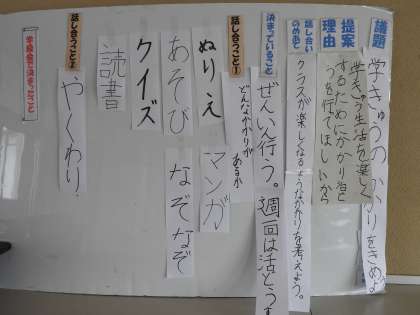 議題
学きゅうのかかりをきめよ
提案理由
学きゅう生活を楽しく
するためにかかり活と
うを行てほしいから
話し合いのめあて
クラスが楽しくなるようなかかりを考えよう。
決まっていること
ぜんいん行う。週一回は活とうす
話し合うこと①
どんなかかりがあるか
ぬりえ
マンガ
あそび
なぞなぞ
クイズ
読書
話し合うこと②
やくわり
学級会で決まったこと